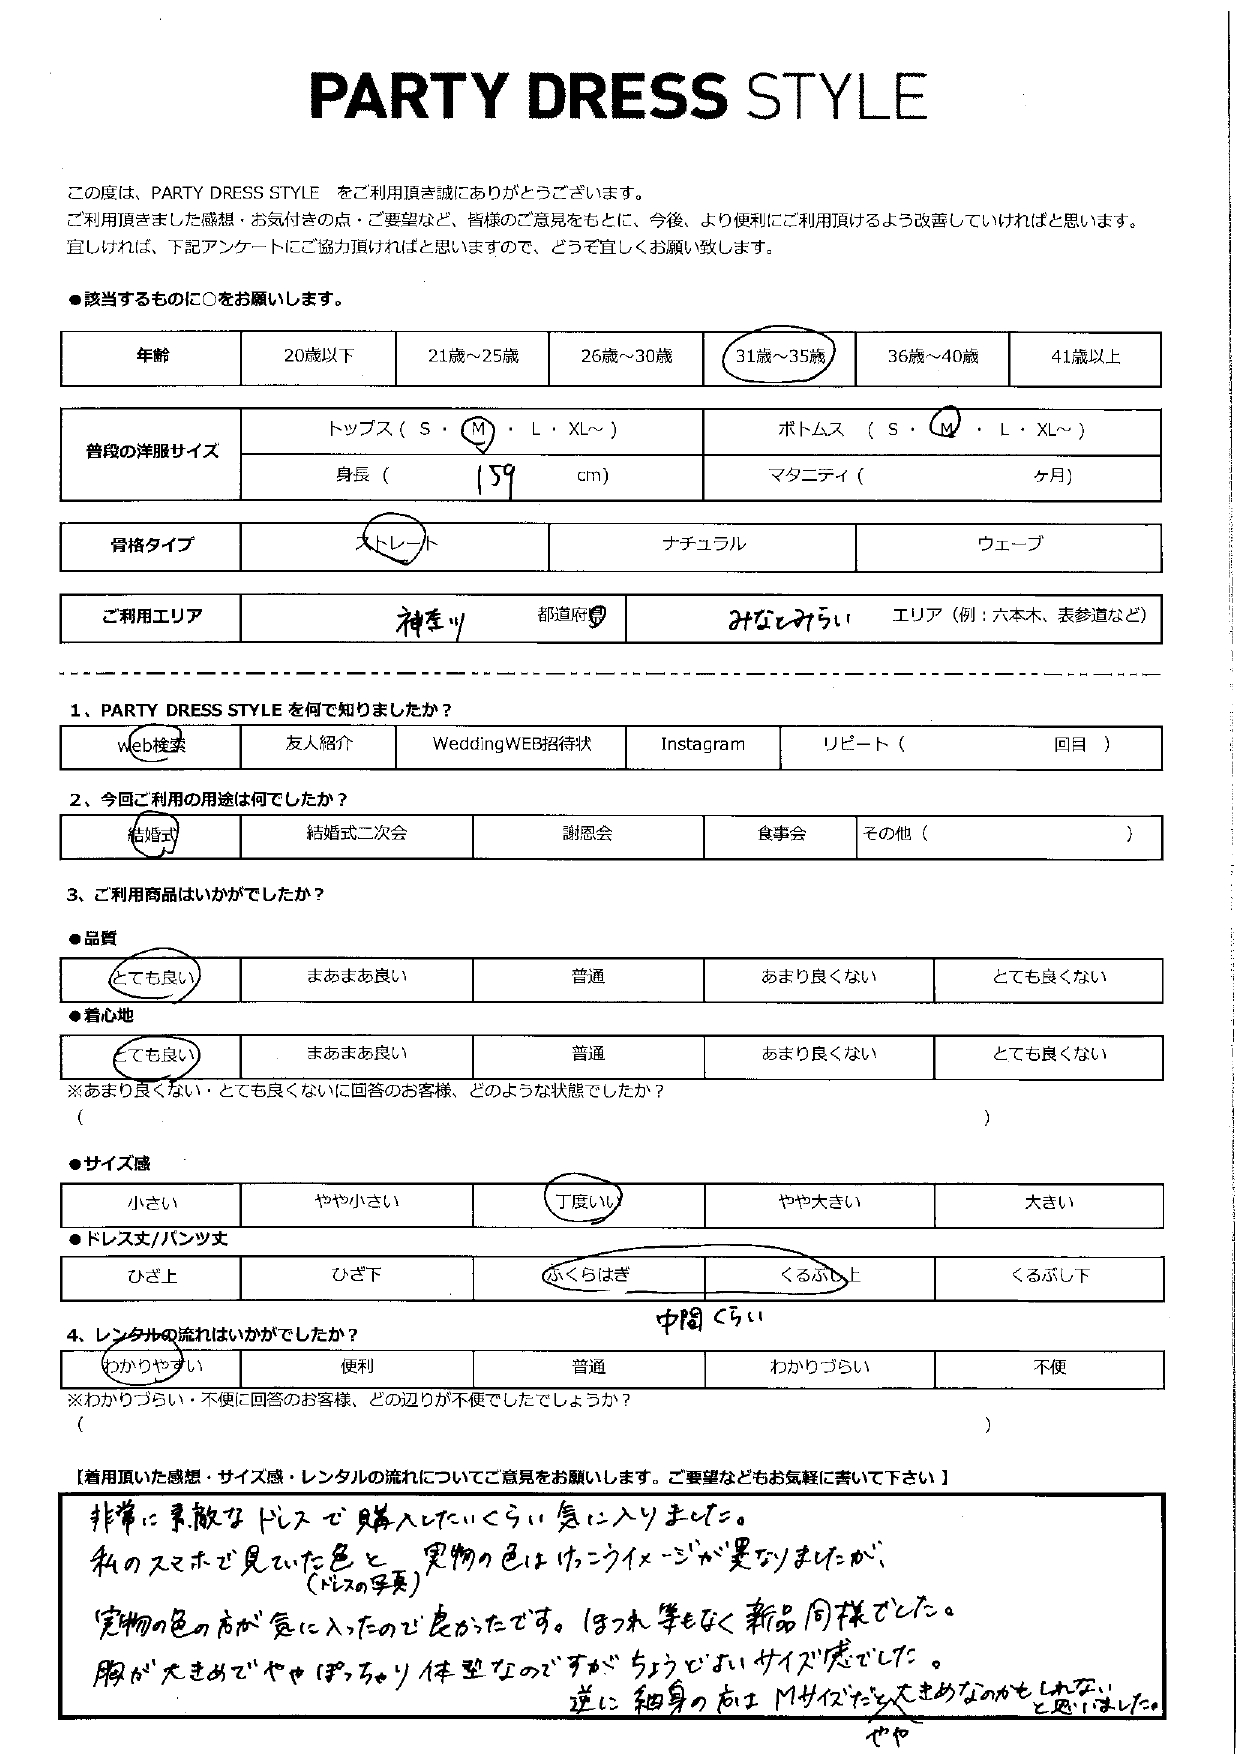 PARTY DRESS STYLE
この度は、PARTY DRESS STYLE　をご利用頂き誠にありがとうございます。
ご利用頂きました感想・お気付きの点・ご要望など、皆様のご意見をもとに、今後、より便利にご利用頂けるよう改善していければと思います。
宜しければ、下記アンケートにご協力頂ければと思いますので、どうぞ宜しくお願い致します。
●該当するものに○をお願いします。
年齢 20歳以下 21歳～25歳 26歳～30歳 31歳～35歳 36歳～40歳 41歳以上
普段の洋服サイズ トップス ( S ・ M ・ L ・ XL～ ) ボトムス ( S ・ M ・ L ・ XL～ )
身長 ( 159 cm) マタニティ ( ヶ月)
骨格タイプ ストレート ナチュラル ウェーブ
ご利用エリア 神奈川 都道府県 みなとみらい エリア（例：六本木、表参道など）
1、PARTY DRESS STYLE を何で知りましたか？
web検索 友人紹介 WeddingWEB招待状 Instagram リピート ( 回目 )
2、今回ご利用の用途は何でしたか？
結婚式 結婚式二次会 謝恩会 食事会 その他 ( )
3、ご利用商品はいかがでしたか？
●品質
とても良い まあまあ良い 普通 あまり良くない とても良くない
●着心地
とても良い まあまあ良い 普通 あまり良くない とても良くない
※あまり良くない・とても良くないに回答のお客様、どのような状態でしたか？
( )
●サイズ感
小さい やや小さい 丁度いい やや大きい 大きい
●ドレス丈/パンツ丈
ひざ上 ひざ下 ふくらはぎ くるぶし上 くるぶし下
中間くらい
4、レンタルの流れはいかがでしたか？
わかりやすい 便利 普通 わかりづらい 不便
※わかりづらい・不便に回答のお客様、どの辺りが不便でしたでしょうか？
( )
【着用頂いた感想・サイズ感・レンタルの流れについてご意見をお願いします。ご要望などもお気軽に書いて下さい 】
非常に素敵なドレスで購入したいくらい気に入りました。
私のスマホで見ていた色と 実物の色はけっこうイメージが異なりましたが、
(ドレスの写真)
実物の色の方が気に入ったので良かったです。ほつれ等もなく新品同様でした。
胸が大きめでややぽっちゃり体型なのですがちょうどよいサイズ感でした。
逆に細身の方はMサイズだと大きめなのかもしれない
と思いました。
やや